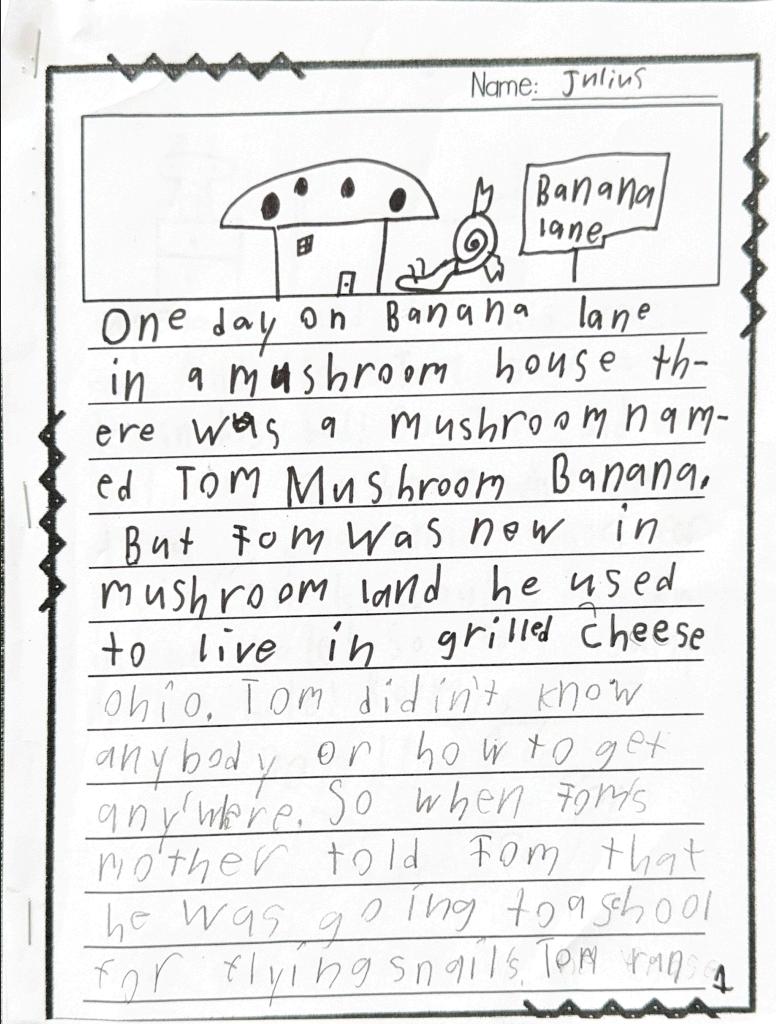 Name: Julius
Banana
lane
One day on Banana lane
in a mushroom house th-
ere was a mushroom nam-
ed Tom Mushroom Banana.
But Tom was new in
mushroom land he used
to live in grilled cheese
ohio. Tom didin't know
anybody or how to get
any'where. So when Tom's
mother told Tom that
he was going to a school
for flying snails. Tom ran
1